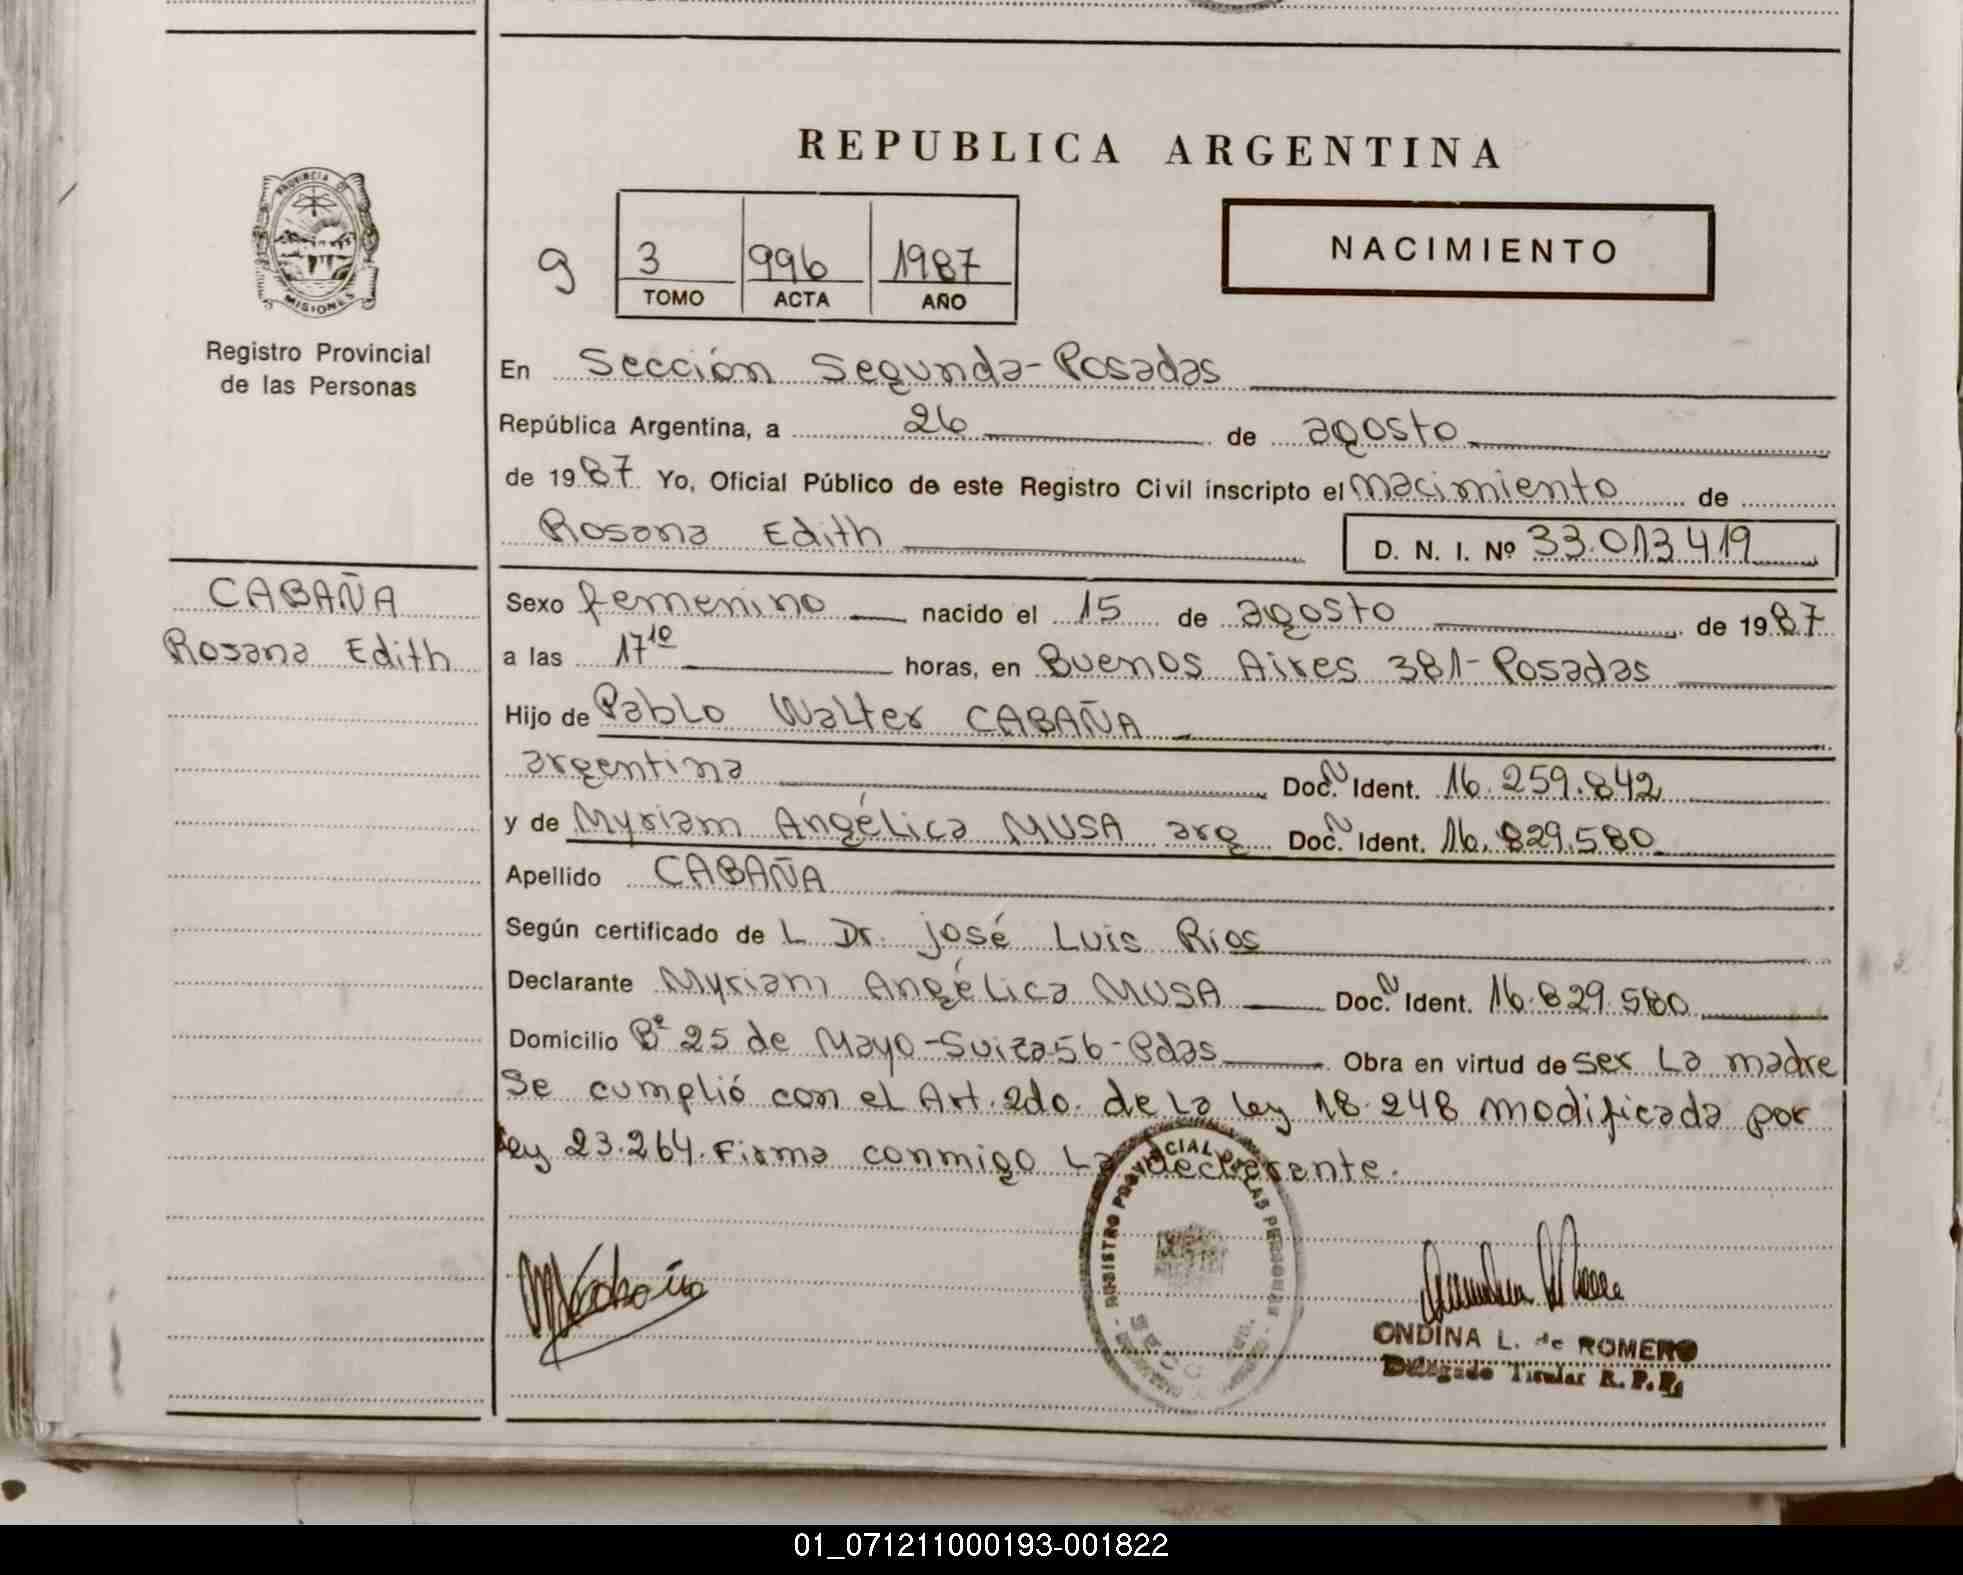 REPUBLICA ARGENTINA
PROVINCIA DE
MISIONES
Registro Provincial
de las Personas
9
3 996 1987
TOMO ACTA AÑO
NACIMIENTO
En Sección Segunda-Posadas
República Argentina, a 26 de agosto
de 1987 Yo, Oficial Público de este Registro Civil inscripto el nacimiento de
Rosana Edith D. N. I. Nº 33.013.419
CABAÑA
Rosana Edith
Sexo femenino nacido el 15 de agosto de 1987
a las 17 10 horas, en Buenos Aires 381-Posadas
Hijo de Pablo Walter CABAÑA
argentina Doc. N Ident. 16.259.842
y de Myriam Angélica MUSA arg Doc. N Ident. 16.829.580
Apellido CABAÑA
Según certificado de L Dr. José Luis Rios
Declarante Myriam Angélica MUSA Doc. N Ident. 16.829.580
Domicilio Bº 25 de Mayo-Suiza 56-Pdas Obra en virtud de ser La madre
Se cumplió con el Art. 2do. de La Ley 18.248 modificada por
Ley 23.264. Firma conmigo La declarente.
REGISTRO PROVINCIAL DE LAS PERSONAS
ONDINA L. de ROMERO
Delegado Titular R. P. P.
01_071211000193-001822